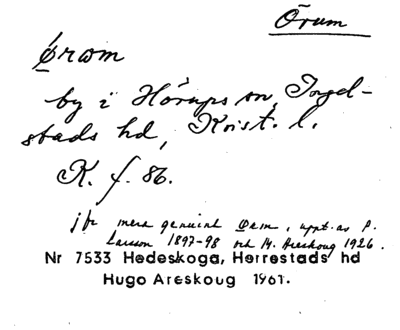 Örum
Ørom
by i Hörups sn, Ingel-
stads hd, Krist. l.
K. f. 86.
jfr mera genuint Ørem, uppt. av P.
Larsson 1897-98 och H. Areskoug 1926.
Nr 7533 Hedeskoga, Herrestads hd
Hugo Areskoug 1961.